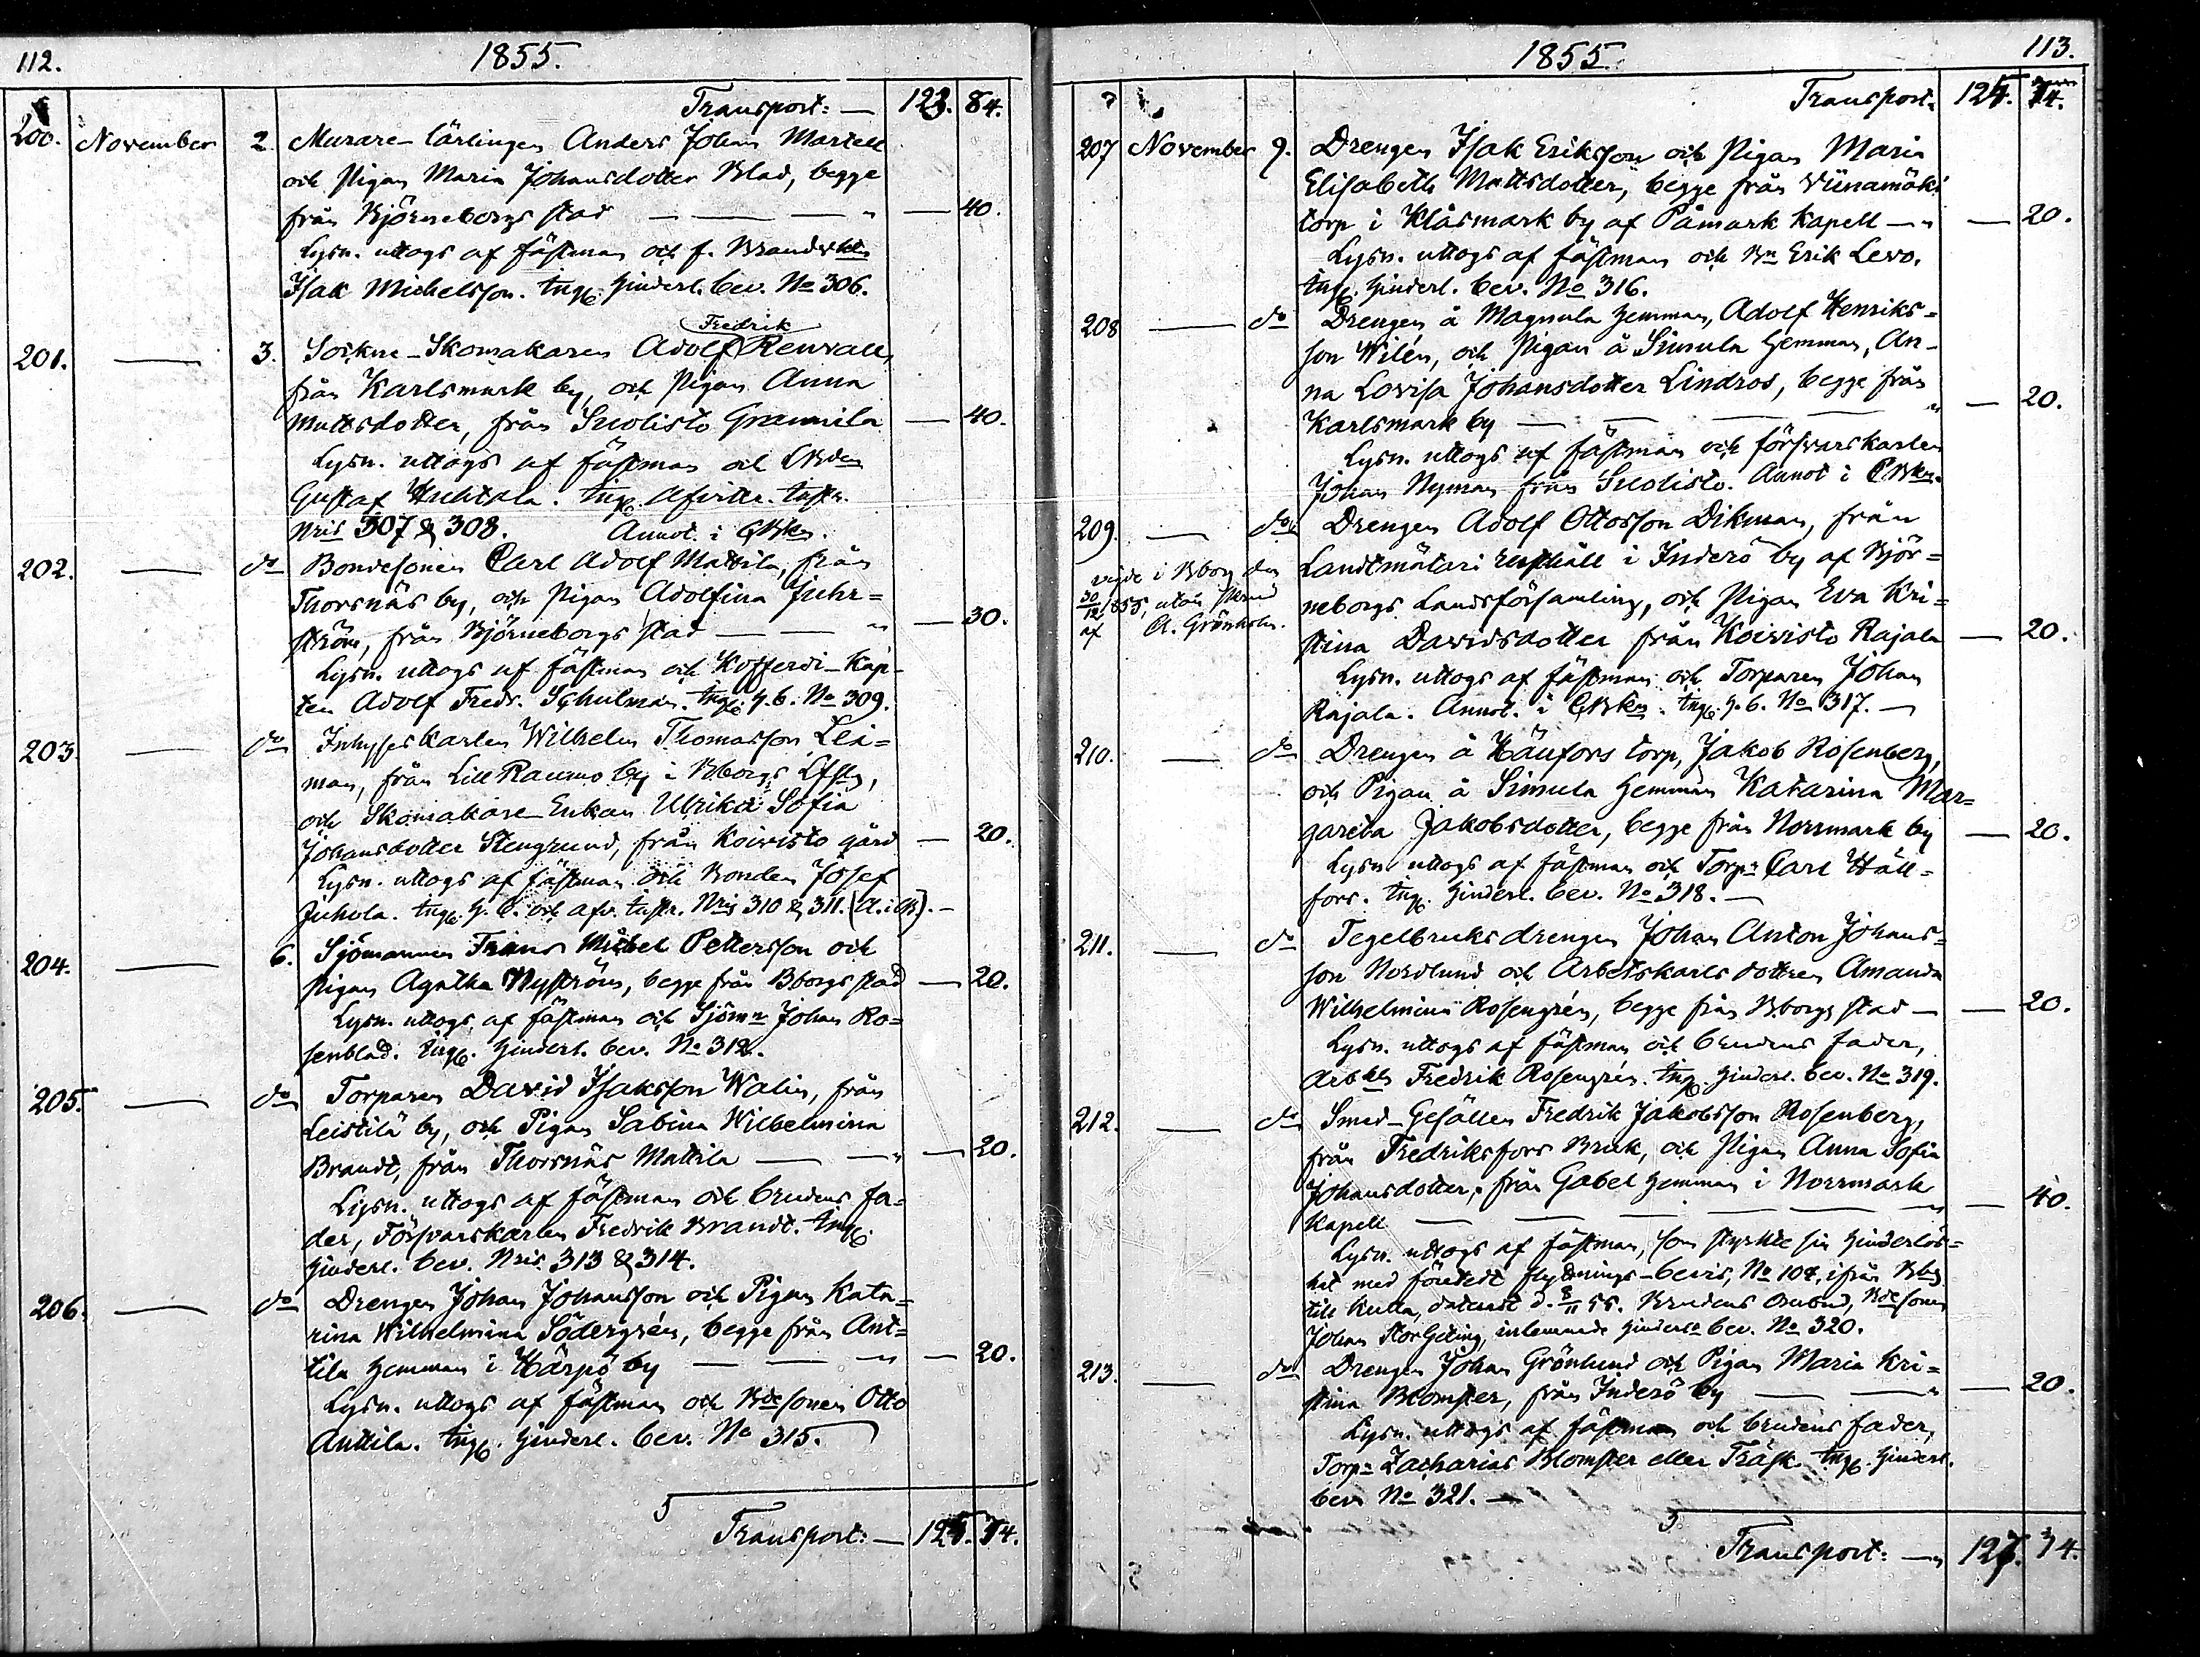 112.
1855.
Transport: — 123. 84.
200. November 2. Murare-lärlingen Anders Johan Martell
och Pigan Maria Johansdotter Blad, begge
från Björneborgs stad — — — " — 40.
Lysn. uttogs af fästman och f.
Isak Michelsson. ingf. hinderl. bev. No 306.
Fredrik
201. — 3. Sockne-Skomakaren Adolf Renvall,
från Karlsmark by, och Pigan Anna
Mattsdotter, från Suolisto Grannila — 40.
Lysn. uttogs af fästman och
Gustaf Huhtala. ingf. afvittr. instr.
Nris 307 & 308. Annot. i
202. — do Bondesonen Carl Adolf Mattila, från
Thorsnäs by, och Pigan Adolfina Juhr=
ström, från Björneborgs stad — — " — 30.
Lysn. uttogs af fästman och Kofferdi-Kap-
ten Adolf Fredr. Schulman. ingf. h. b. No 309.
203. — do Inhyses karlen Wilhelm Thomasson Lei=
man, från Lill Raumo by i Bborgs Lfsg,
och Skomakare-Enkan Ulrika Sofia
Johansdotter Stengrund, från Koivisto gård — 20.
Lysn. uttogs af fästman och Bonden Josef
Juhola. ingf. h. b. och afv. instr. Nris 310 & 311. (A. i B). —
204. — 6. Sjömannen Frans Mickel Pettersson och
Pigan Agatha Nyström, begge från Bborgs stad — 20.
Lysn. uttogs af fästman och Sjömn Johan Ro=
senblad. ingf. hinderl. bev. No 312.
205. — do Torparen David Isaksson Walin, från
Leistilä by, och Pigan Sabina Wilhelmina
Brandt, från Thorsnäs Mattila — — " — 20.
Lysn. uttogs af fästman och brudens fa=
der, Försvarskarlen Fredrik Brandt. ingf.
hinderl. bev. Nris 313 & 314.
206. — do Drengen Johan Johansson och Pigan Kata=
rina Wilhelmina Södergrén, begge från Ant=
tila hemman i Härpö by — — " — 20.
Lysn. uttogs af fästman och Bdesonen Otto
Anttila. ingf. hinderl. bev. No 315.
Transport: — 125. 74.
1855.
113.
Transport: 125. 74.
207 November 9. Drengen Isak Eriksson och Pigan Maria
Elisabeth Mattsdotter, begge från Viinamäki
torp i Klåsmark by af Påmark Kapell — " — 20.
Lysn. uttogs af fästman och Bn Erik Levo.
ingf. hinderl. bev. No 316.
208 — do Drengen å Magnula hemman, Adolf Henriks=
son Wilén, och Pigan å Simula hemman, An-
na Lovisa Johansdotter Lindros, begge från
Karlsmark by — — — — " — 20.
Lysn. uttogs af fästman och försvarskarlen
Johan Nyman från Suolisto. Annot i
209. — do Drengen Adolf Ottosson Dikman, från
Landtmätari rusthåll i Inderö by af Björ=
neborgs Landsförsamling, och Pigan Eva Kri=
stina Davidsdotter från Koivisto Rajala — 20.
vigde i Bborg den
30/12 1855, utan
af A. Grönholm.
Lysn. uttogs af fästman och Torparen Johan
Rajala. Annot. i ingf. h. b. No 317. —
210. — do Drengen å Hänfors torp, Jakob Rosenberg,
och Pigan å Simula hemman Katarina Mar=
gareta Jakobsdotter, begge från Norrmark by — 20.
Lysn. uttogs af fästman och Torpn Carl Häll=
fors. ingf. hinderl. bev. No 318. —
211. — do Tegelbruksdrengen Johan Anton Johans=
son Nordlund och Arbetskarls dottren Amanda
Wilhelmina Rosengrén, begge från Bborgs stad — — 20.
Lysn. uttogs af fästman och brudens fader,
Arbkln Fredrik Rosengrén. ingf. hinderl. bev. No 319.
212. — do Smed-Gesällen Fredrik Jakobsson Rosenberg,
från Fredriksfors Bruk, och Pigan Anna Sofia
Johansdotter, från Gabel hemman i Norrmark
Kapell — — — — — " — 40.
Lysn. uttogs af fästman, som styrkte sin hinderlös=
het med företedt flyttnings-bevis, No 107, ifrån
till Kulla, dateradt d. 8/11 55. Brudens ombud, Bdesonen
Johan StorGeting, inlemnade hinderls bev. No 320.
213. — do Drengen Johan Grönlund och Pigan Maria Kri=
stina Blomster, från Inderö by — — " — 20.
Lysn. uttogs af fästman och brudens fader,
Torpn Zacharias Blomster eller Träsk. ingf. hinderl.
bev. No 321. —
Transport: — " 127. 34.